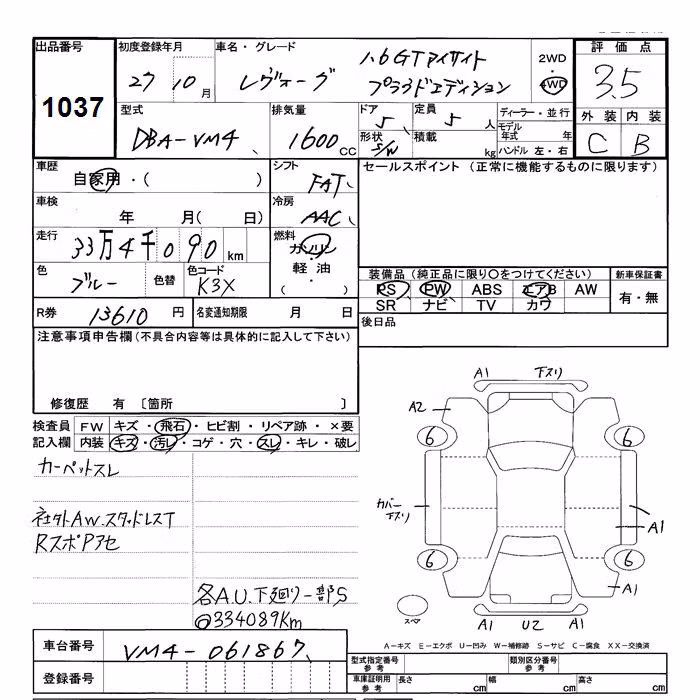 出品番号 初度登録年月 車名・グレード 1.6GTアイサイト 2WD 評価点
1037 27 10月 レヴォーグ プラウドエディション 4WD 3.5
型式 排気量 ドア 定員 ディーラー・並行 外装 内装
DBA-VM4 1600cc 5 5人 モデル年式 年 C B
形状 S/W 積載 kg ハンドル 左・右
車歴 自家用・( ) シフト FAT セールスポイント (正常に機能するものに限ります)
車検 年 月( 日) 冷房 AAC
走行 33万4千090km 燃料 ガソリン
色 ブルー 色替 色コード K3X 軽油 ( ・ ) 装備品(純正品に限り〇をつけてください) 新車保証書
PS PW ABS エアB AW 有・無
SR ナビ TV カワ
R券 13610円 名変通知期限 月 日 後日品
注意事項申告欄(不具合内容等は具体的に記入して下さい)
修復歴 有 〔箇所 〕
検査員 FW キズ・飛石・ヒビ割・リペア跡・×要
記入欄 内装 キズ・汚レ・コゲ・穴・スレ・キレ・破レ
カーペットスレ
社外AW.スタッドレスT
RスポPアセ
各A.U.下廻リ一部S
@334089Km
A1 下スリ
A2
6 6
カバー下スリ A1
6 6
A1
スペア A1 U2 A1
A-キズ E-エクボ U-凹み W-補修跡 S-サビ C-腐食 XX-交換済
車台番号 VM4-061867
登録番号
型式指定番号 参考 類別区分番号 参考
車庫証明用 参考 長さ cm 幅 cm 高さ cm